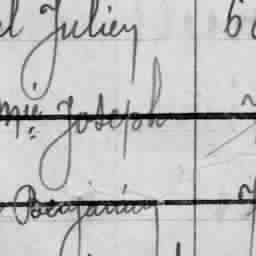 el Julien 6
Mie Joseph
Benjamin